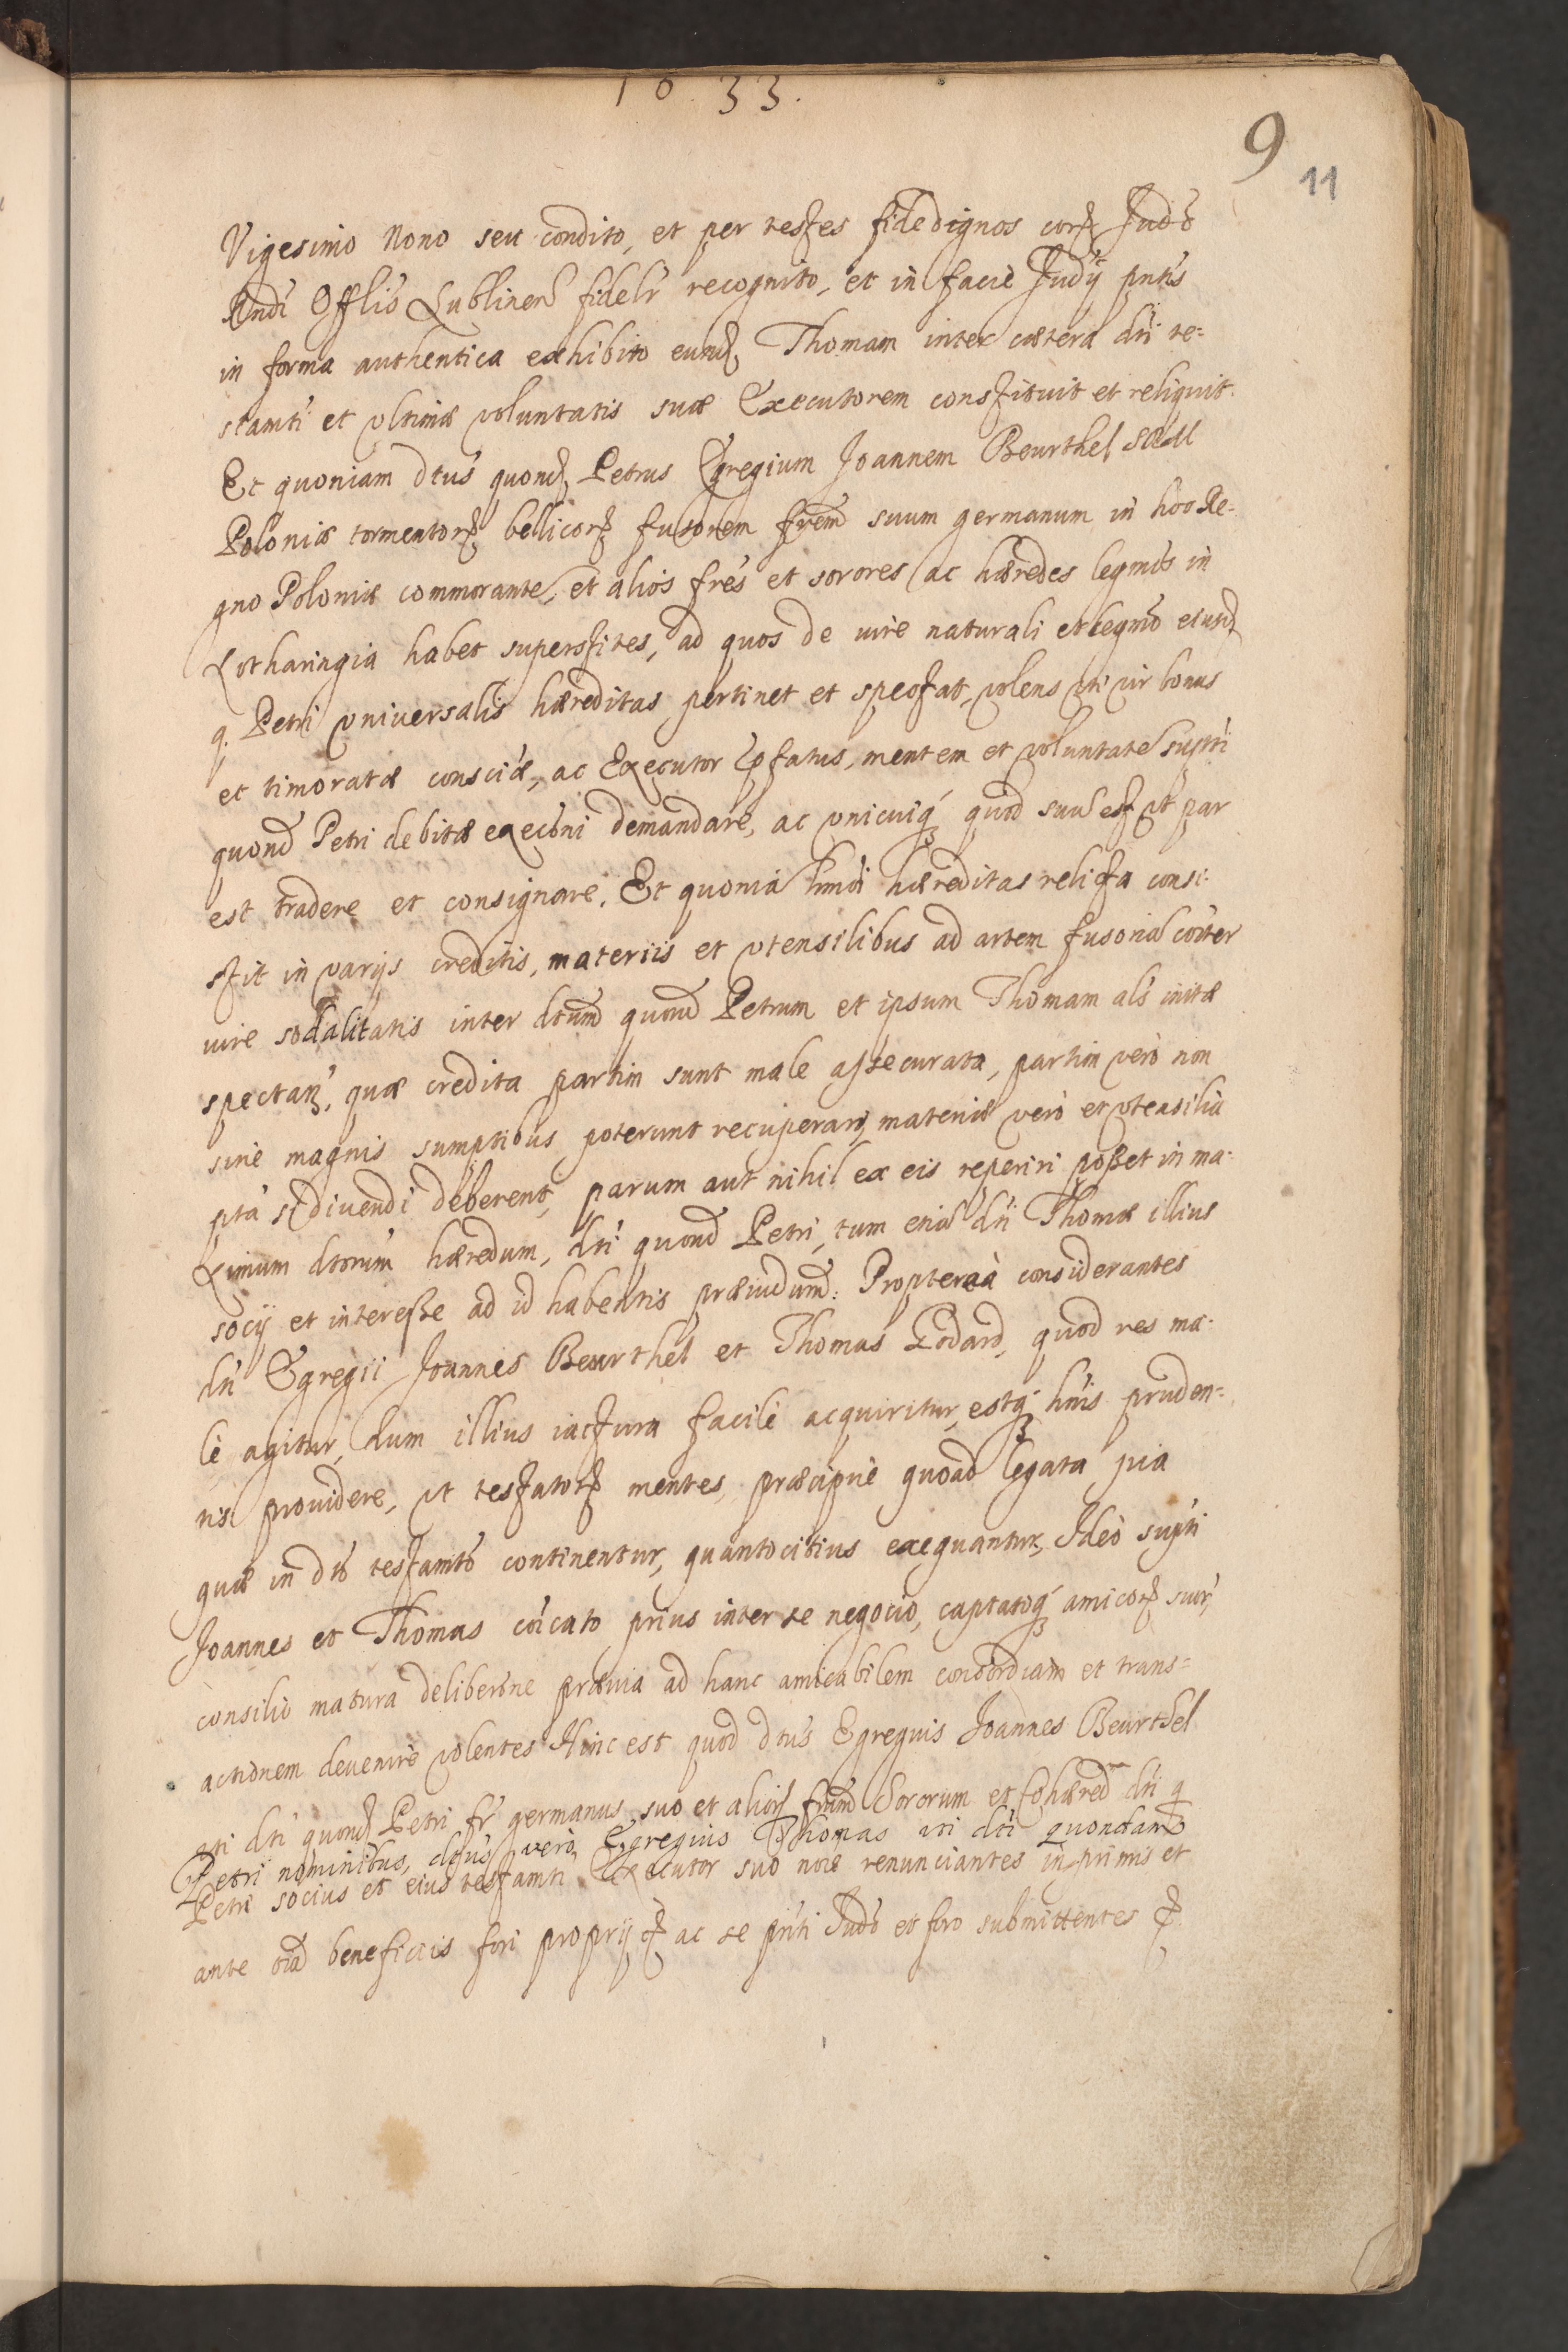 1633.
9
11
Vigesimo Nono seu condito, et per testes fidedignos cor Judo
Rndi Offlis Lublinen fidelr recognito, et in facie Judÿ pntis
in forma authentica exhibito eund Thomam inter cætera dti te=
stamti et vltimæ voluntatis suæ Executorem constituit et reliquit.
Et quoniam dtus quond Petrus Egregium Joannem Beurthel SRM
Poloniæ tormentor bellicor fusorem frem suum germanum in hoc Re-
gno Poloniæ commorante, et alios fres et sorores ac hæredes legmos in
Lotharingia habet superstites, ad quos de iure naturali et legmo eiusd
q. Petri vniversalis hæreditas pertinet et spectat, volens vti vir bonus
et timoratæ consciæ, ac Executor pfatus, mentem et voluntate supti
quond Petri debitæ execoni demandare, ac vnicuiq quod suu est vt par
est tradere et consignare. Et quonia hmoi hæreditas relicta consi-
stit in varijs creditis, materiis et vtensilibus ad artem fusoria coiter
iure sodalitatis inter dtum quond Petrum et ipsum Thomam als initæ
spectan, quæ credita partim sunt male assecurata, partim vero non
sine magnis sumptibus poterunt recuperari, materiæ vero et vtensilia
pta si divendi deberent, parum aut nihil ex eis reperiri posset in ma-
ximum dtorum hæredum, dti quond Petri, tum etia dti Thomæ illius
socij et interesse ad id habentis præiudum: Propterea considerantes
dti Egregii Joannes Beurthel et Thomas Godard, quod res ma-
le agitur, dum illius iactura facile acquiritur, estq huis pruden=
tis providere, vt testator mentes, præcipue quoad legata pia
quæ in dto testamto continentur, quantocitius exequantur, Ideo supti
Joannes et Thomas coicato prius inter se negocio, captatoq amicor suor
consilio matura deliberone prævia ad hanc amicabilem concordiam et trans=
actionem devenire volentes Hinc est quod dtus Egregius Joannes Beurthel
vti dti quond Petri fr germanus suo et alior frum Sororum et Cohæred dti q
Petri nominibus, dtus vero Egregius Thomas uti dti quondam
Petri socius et eius testamti Executor suo noie renunciantes inprimis et
ante oia beneficiis fori proprij & ac se pnti Judo et foro submittentes &